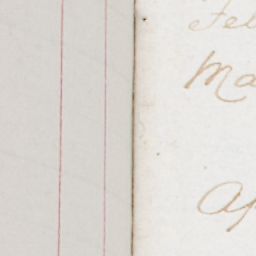 Feb
Ma
Ap